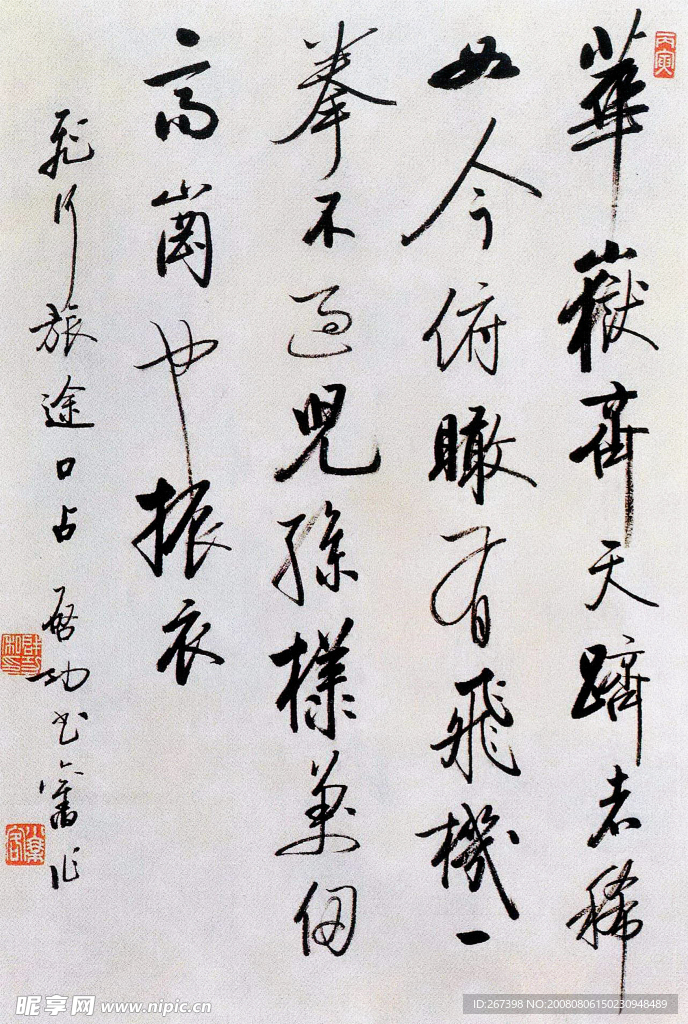 華嶽齊天躋者稀
如今俯瞰有飛機一
拳不過兒孫樣萬仞
高崗也振衣
飛行旅途口占 啓功書舊作
丙寅
昵享网 www.nipic.cn
ID:267398 NO:20080806150230948489